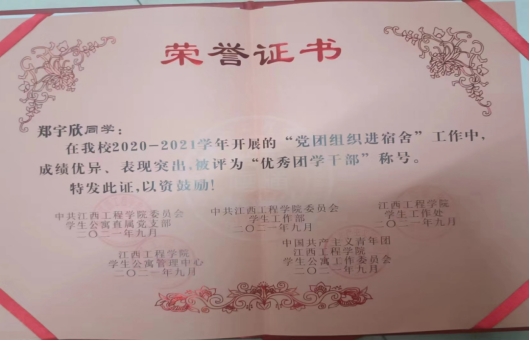 荣誉证书
郑宇欣同学：
在我校2020-2021学年开展的“党团组织进宿舍”工作中，
成绩优异、表现突出，被评为“优秀团学干部”称号。
特发此证，以资鼓励！
中共江西工程学院委员会
学生公寓直属党支部
二〇二一年九月
中共江西工程学院委员会
学生工作部
二〇二一年九月
江西工程学院
学生工作处
二〇二一年九月
江西工程学院
学生公寓管理中心
二〇二一年九月
中国共产主义青年团
江西工程学院
学生公寓工作委员会
二〇二一年九月